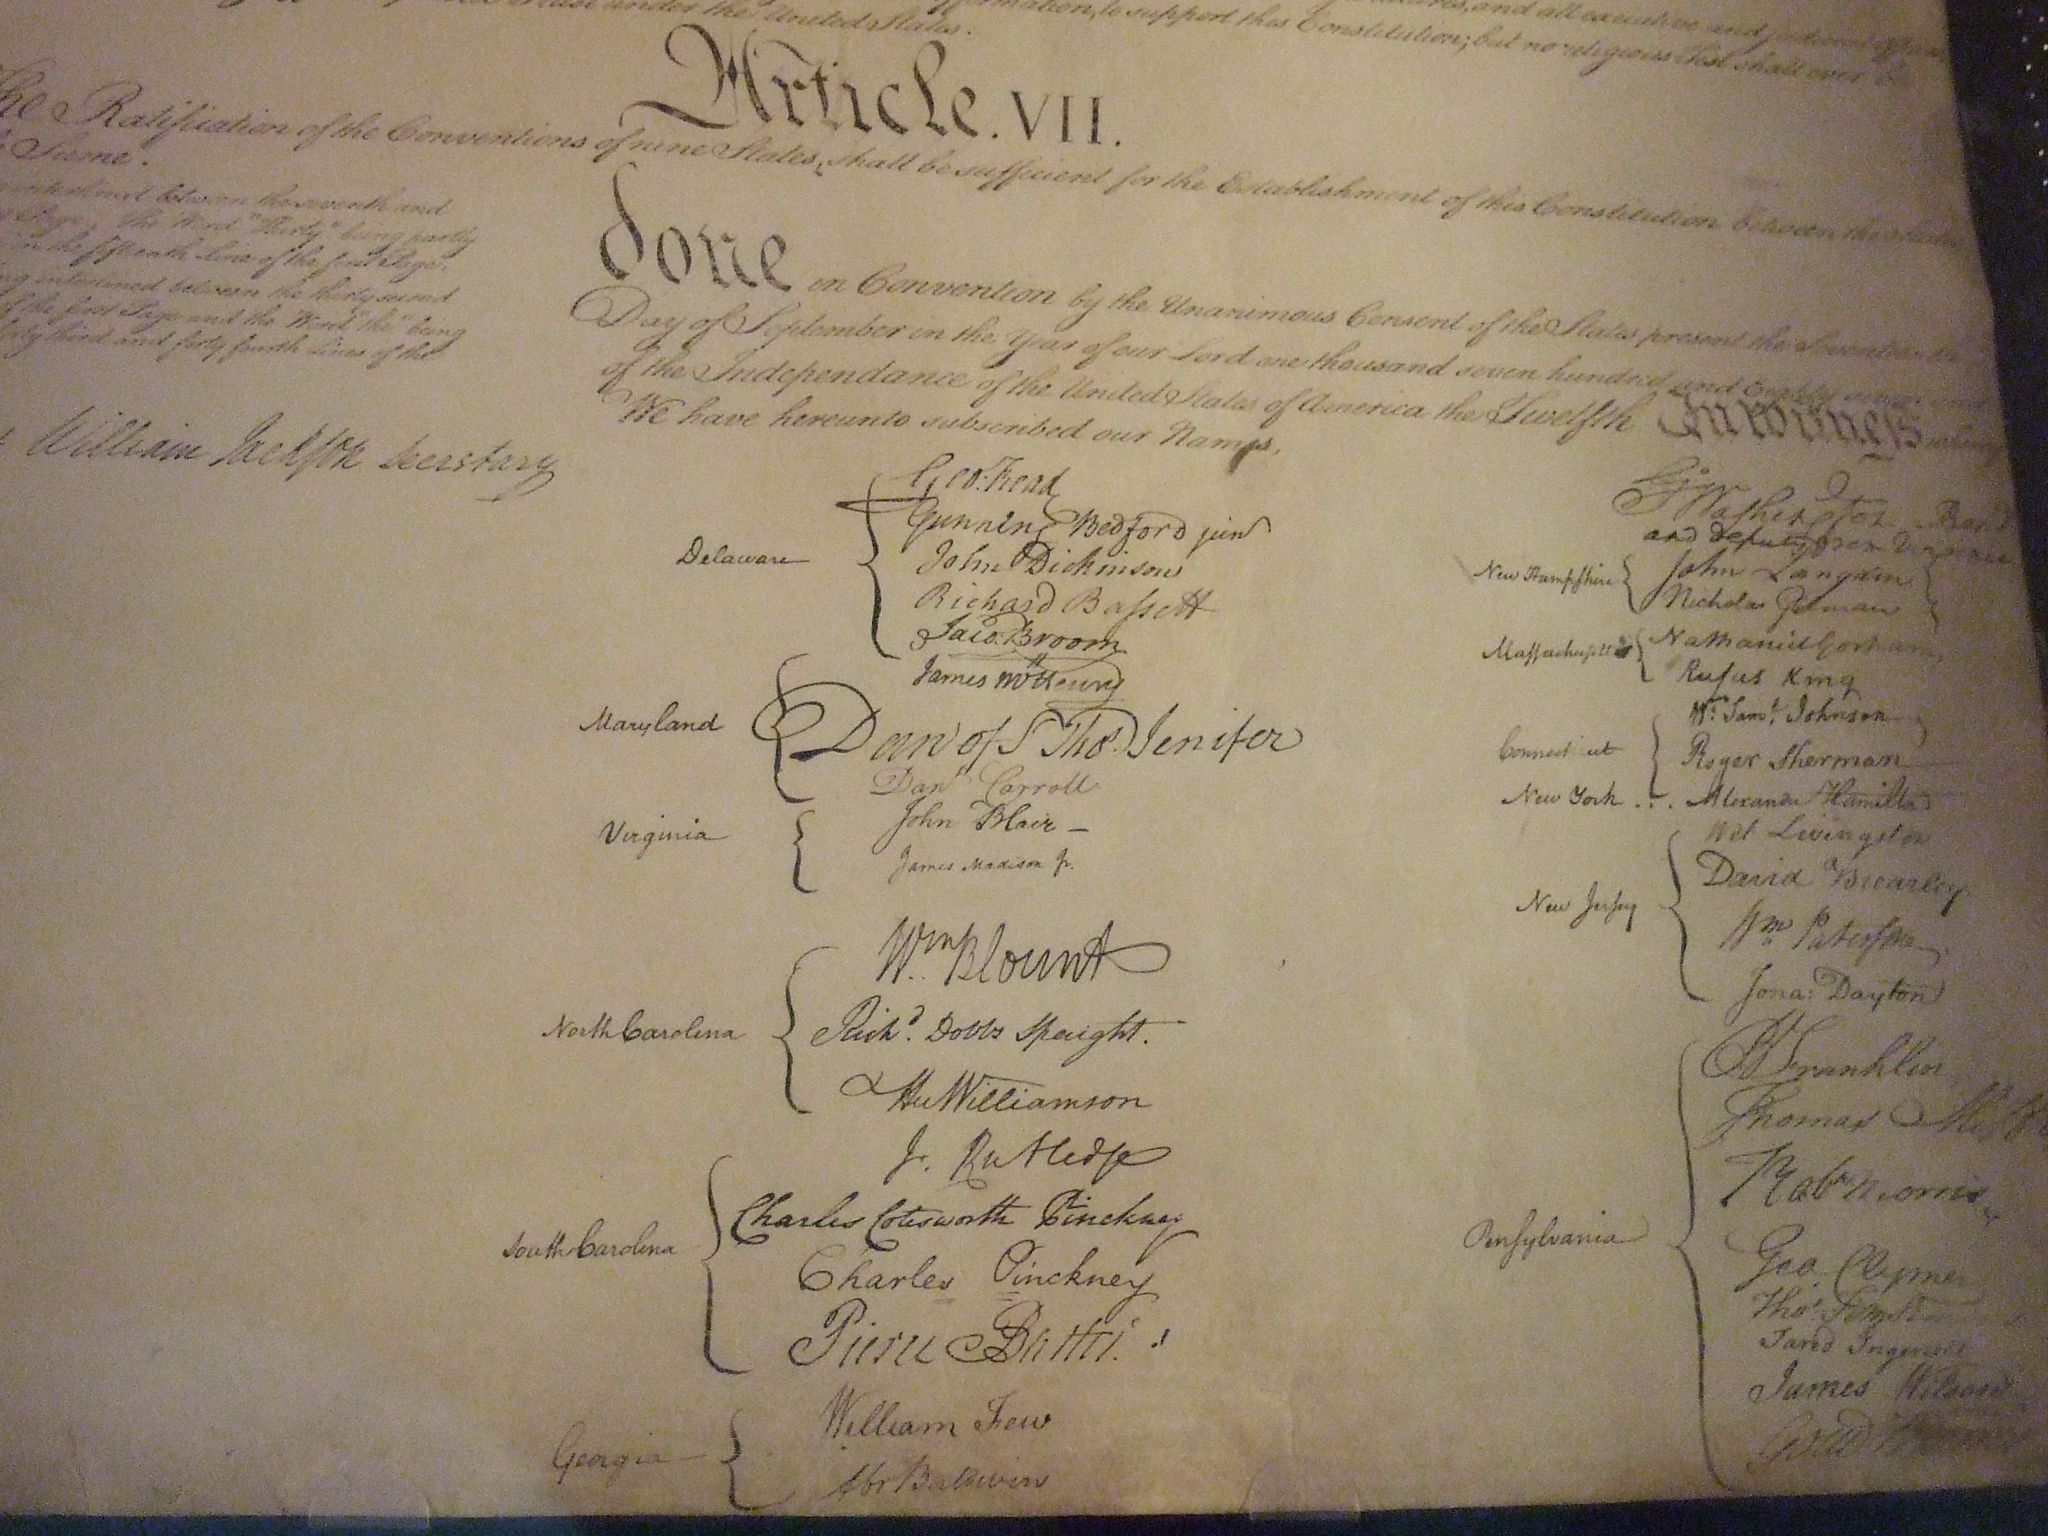 under the United States.
to support this Constitution; but no religious Test shall ever be
and all executive and judicial
Article. VII.
The Ratification of the Conventions of nine States, shall be sufficient for the Establishment of this Constitution between the States
Same.
interlined between the seventh and
Page, the Word "Thirty" being partly
in the fifteenth Line of the first Page,
interlined between the thirty second
of the first Page and the Word "the" being
forty third and forty fourth Lines of the
William Jackson Secretary
done in Convention by the Unanimous Consent of the States present the Seventeenth
Day of September in the Year of our Lord one thousand seven hundred and Eighty seven and
of the Independance of the United States of America the Twelfth In Witness whereof
We have hereunto subscribed our Names,
Delaware
Geo: Read
Gunning Bedford jun
John Dickinson
Richard Bassett
Jaco: Broom
Maryland
James McHenry
Dan of St Thos. Jenifer
Danl Carroll
Virginia
John Blair –
James Madison Jr.
North Carolina
Wm. Blount
Richd. Dobbs Spaight.
Hu Williamson
South Carolina
J. Rutledge
Charles Cotesworth Pinckney
Charles Pinckney
Pierce Butler.
Georgia
William Few
Abr Baldwin
Go Washington Presidt
and deputy from Virginia
New Hampshire
John Langdon
Nicholas Gilman
Massachusetts
Nathaniel Gorham
Rufus King
Connecticut
Wm. Saml. Johnson
Roger Sherman
New York . . .
Alexander Hamilton
New Jersey
Wil Livingston
David Brearley
Wm Paterson
Jona: Dayton
Pensylvania
B Franklin
Thomas Mifflin
Robt Morris
Geo. Clymer
Thos
Jared Ingersoll
James Wilson
Gouv